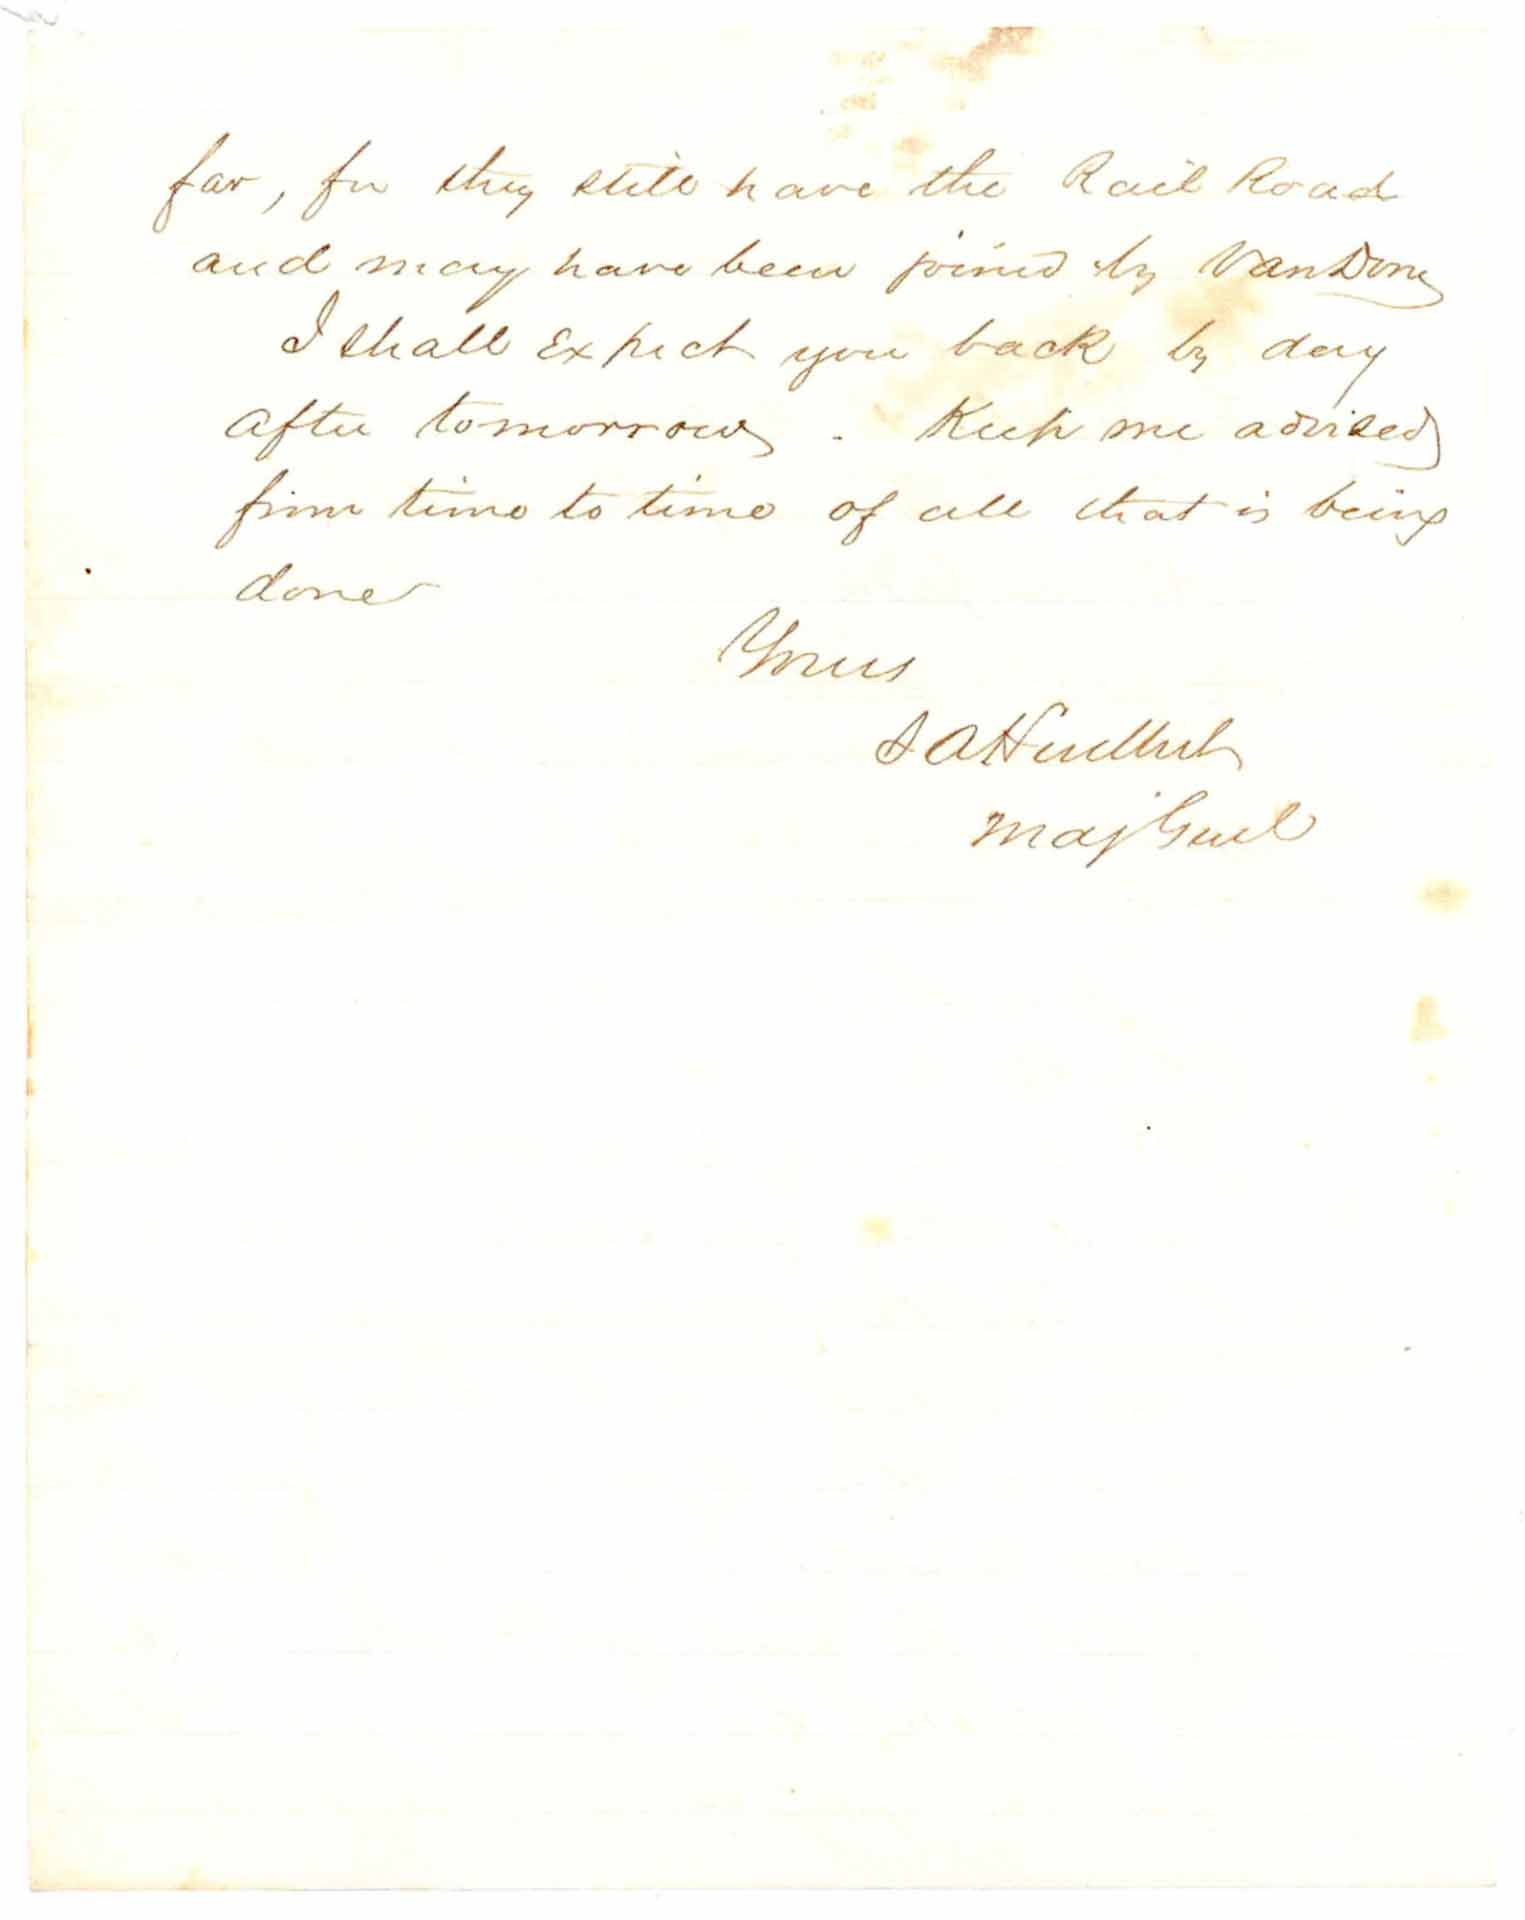 far, for they still have the Rail Road
and may have been joined by Van Dorn
I shall Expect you back by day
after tomorrow. Keep me advised
from time to time of all that is being
done
Yours
S A Hurlbut
Maj Genl